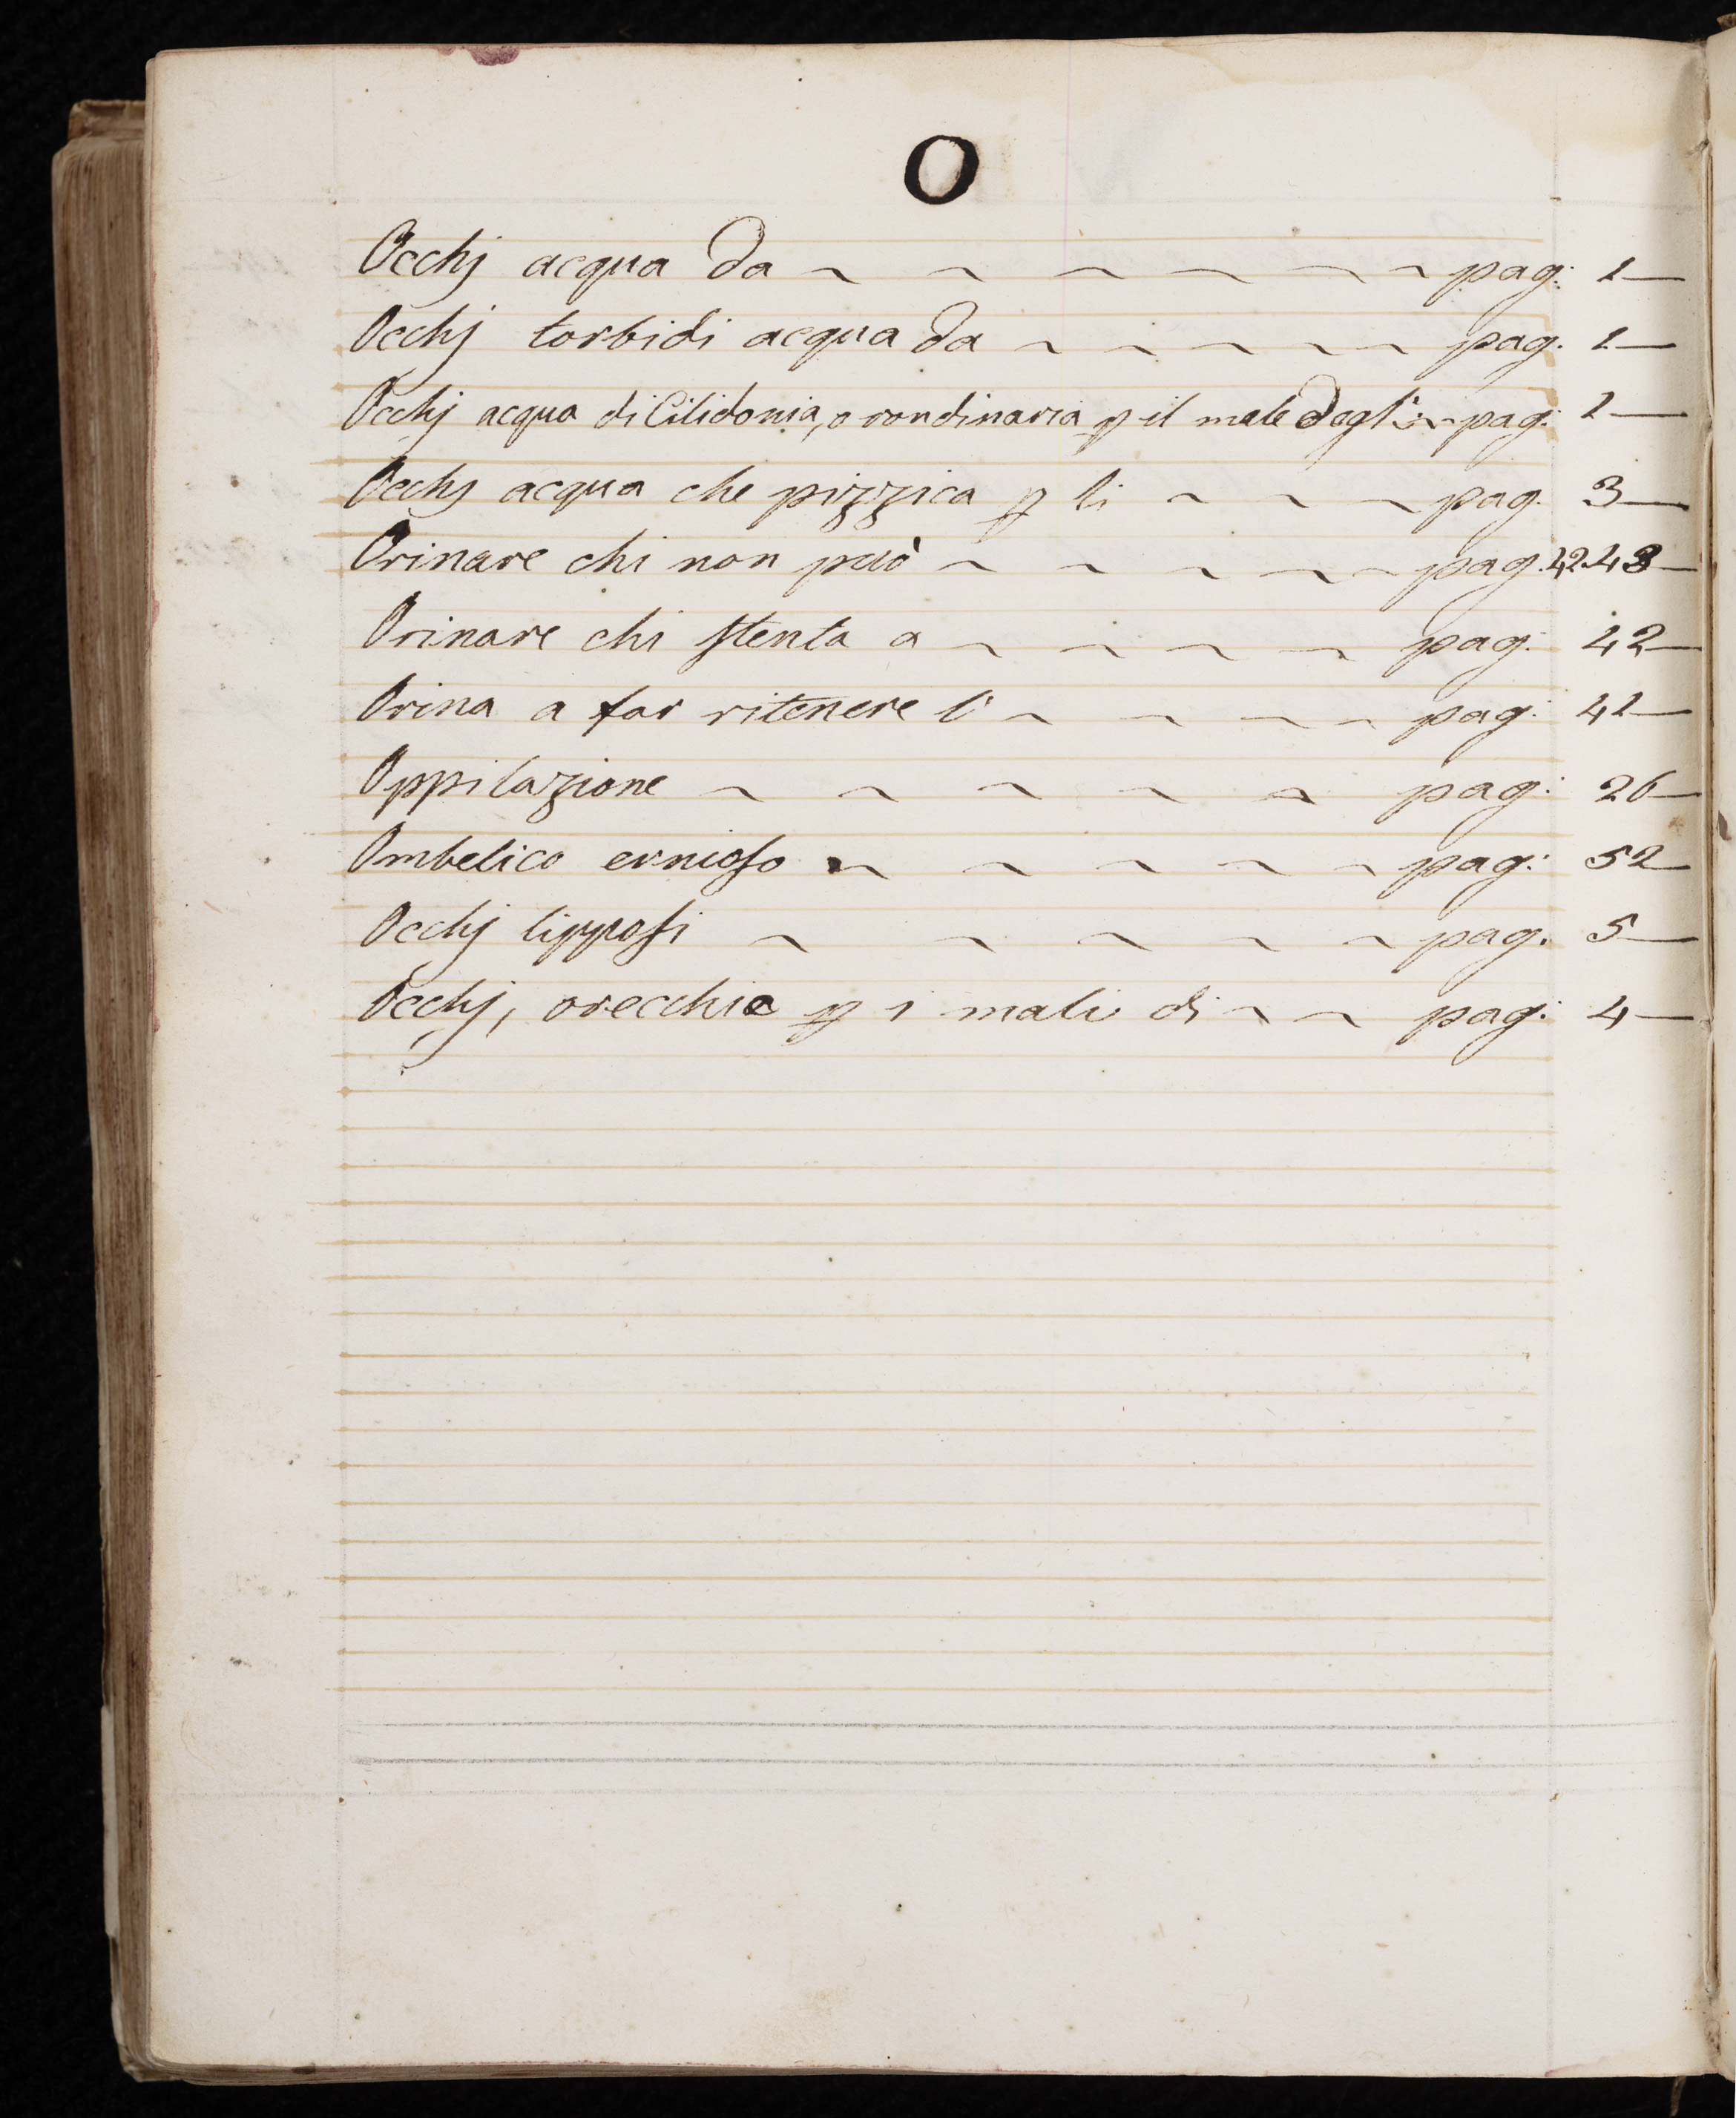 O
Occhj acqua da ~ ~ ~ ~ ~ ~ pag: 1—
Occhj torbidi acqua da ~ ~ ~ ~ ~ pag. 1—
Occhj acqua di Cilidonia, o rondinaria p il male degl': ~ pag: 1—
Occhj acqua che pizzica p li ~ ~ ~ pag. 3—
Orinare chi non può ~ ~ ~ ~ ~ pag. 42.43—
Orinare chi stenta a ~ ~ ~ ~ pag: 42—
Orina a far ritenere l' ~ ~ ~ ~ pag: 41—
Oppilazione ~ ~ ~ ~ ~ pag: 26—
Ombelico ernioso ~ ~ ~ ~ ~ pag: 52
Occhj lipposi ~ ~ ~ ~ ~ pag. 5—
Occhj, orecchie p i mali di ~ ~ pag: 4—